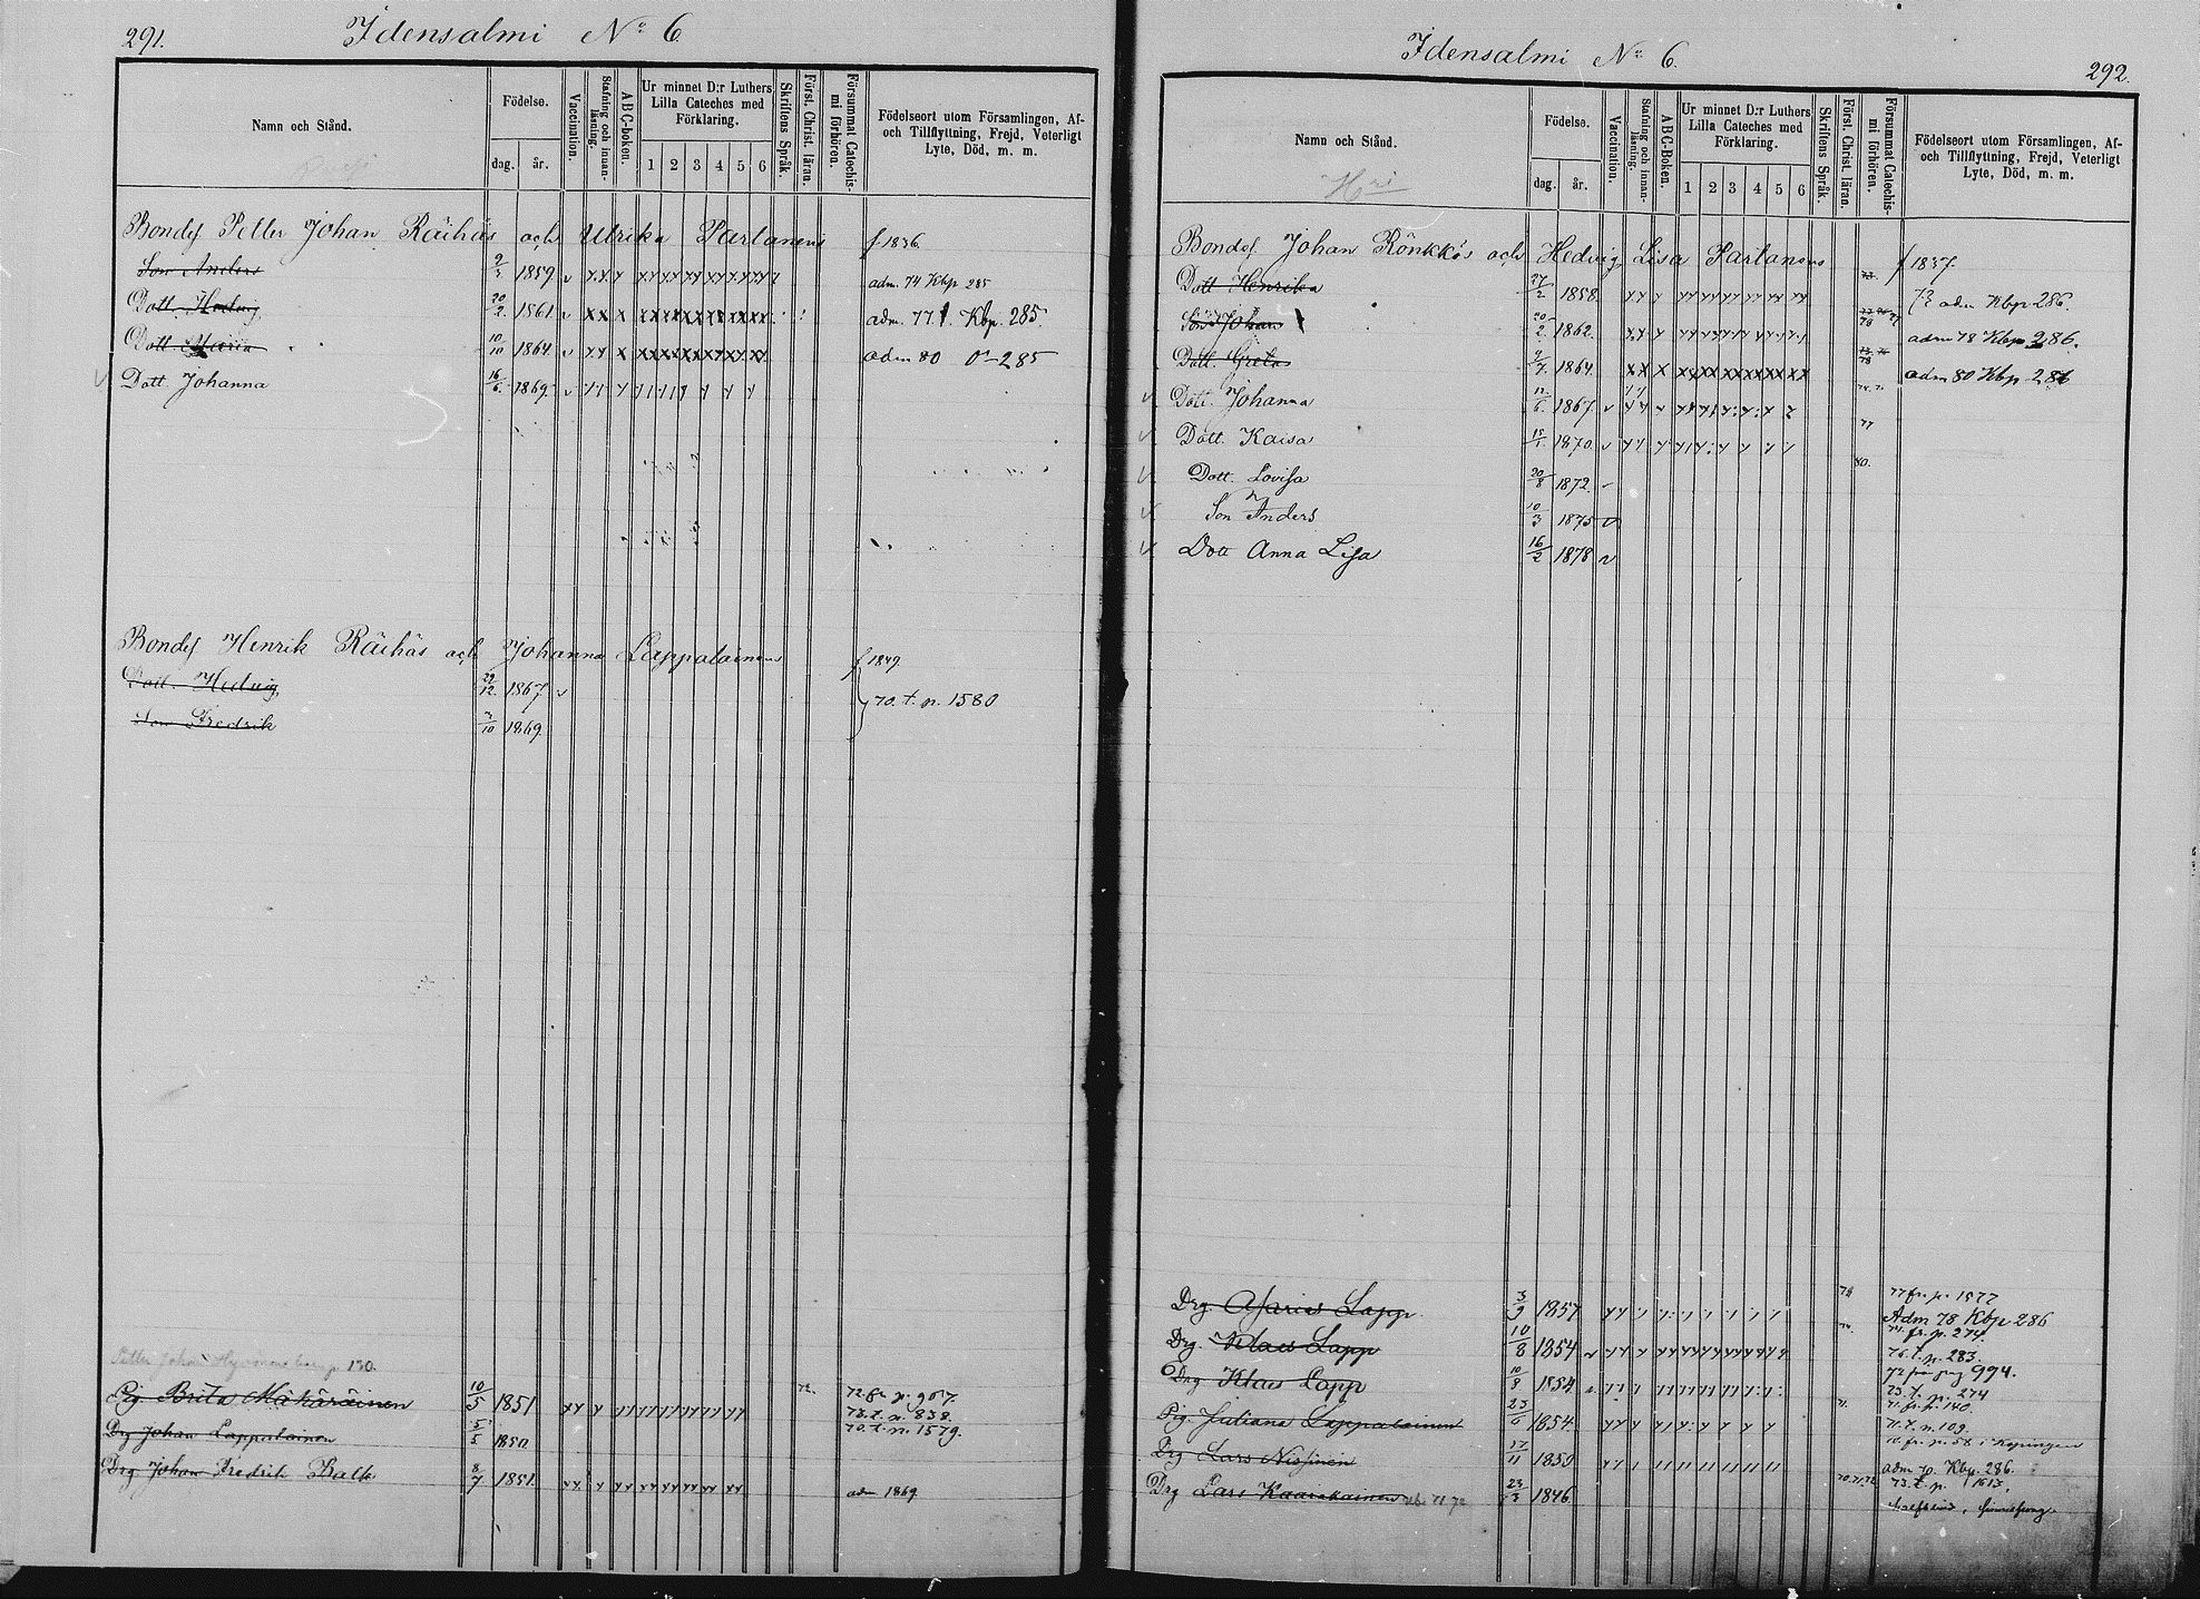 291.
Idensalmi No 6
Namn och Stånd.
Födelse.
dag.
år.
Vaccination.
Stafning och innan-läsning.
ABC-boken.
Ur minnet D:r Luthers Lilla Cateches med Förklaring.
1 2 3 4 5 6
Skriftens Språk.
Först. Christ. läran.
Försummat Catechis-mi förhören.
Födelseort utom Församlingen, Af-
och Tillflyttning, Frejd, Veterligt
Lyte, Död, m. m.
Bondes Petter Johan Räihäs och Ulrika Partanens f 1836.
Son Anders 9/3 1859. adm. 74 Kbp 285
Dott. Hedvig 20/2 1861 adm. 77. Kbp. 285.
Dott. Maria 10/10 1864. adm 80 o 285
Dott. Johanna 16/6 1869.
Bondes Henrik Räihäs och Johanna Lappalainens f 1849.
Dott. Hedvig 29/12 1867.
70. t. p. 1580
Son Fredrik 3/10 1869
Petter Johan 130.
Pig. Brita Mäkäräinen 10/5 1851 72. fr. p. 907.
73. t. p. 838.
Drg Johan Lappalainen 5/5 1850. 70. t. p. 1579.
Drg Johan Fredrik Balk 8/7 1851. adm 1869
Idensalmi No 6.
292.
Namn och Stånd.
Födelse.
dag.
år.
Vaccination.
Stafning och innan-läsning.
ABC-Boken.
Ur minnet D:r Luthers Lilla Cateches med Förklaring.
1 2 3 4 5 6
Skriftens Språk.
Först. Christ. läran.
Försummat Catechis-mi förhören.
Födelseort utom Församlingen, Af-
och Tillflyttning, Frejd, Veterligt
Lyte, Död, m. m.
Bondes Johan Rönkkös och Hedvig Lisa Partanens f 1837.
Dott Henrika 27/2 1858. adm Kbp 286.
Son Johan 20/2 1862. adm 78 Kbp 286.
Dott. Greta 9/7 1864. adm 80 Kbp 286
Dott. Johanna 12/6 1867.
Dott. Kaisa 15/1 1870. 77
Dott. Lovisa 20/8 1872. 80.
Son Anders 10/3 1875
Dott Anna Lisa 16/2 1878
Drg. Asarias Lapp 3/9 1857 77 fr. p. 1577
Adm 78 Kbp 286
Drg. Klaes Lapp 10/8 1854 74. fr. p. 274.
76. t. p. 283.
Drg Klaes Lapp 10/8 1854 994.
73. t. p. 274
Pig. Juliana Lappalainen 23/6 1854. 71. fr. p. 140.
71. t. p. 109.
Drg Lars Nissinen 17/11 1850 fr. p. 58 i Kopingen
adm 70. Kbp. 286.
Drg Lars Kaarakainen 23/3 1846 70.71.72 73. t. p. 1613.